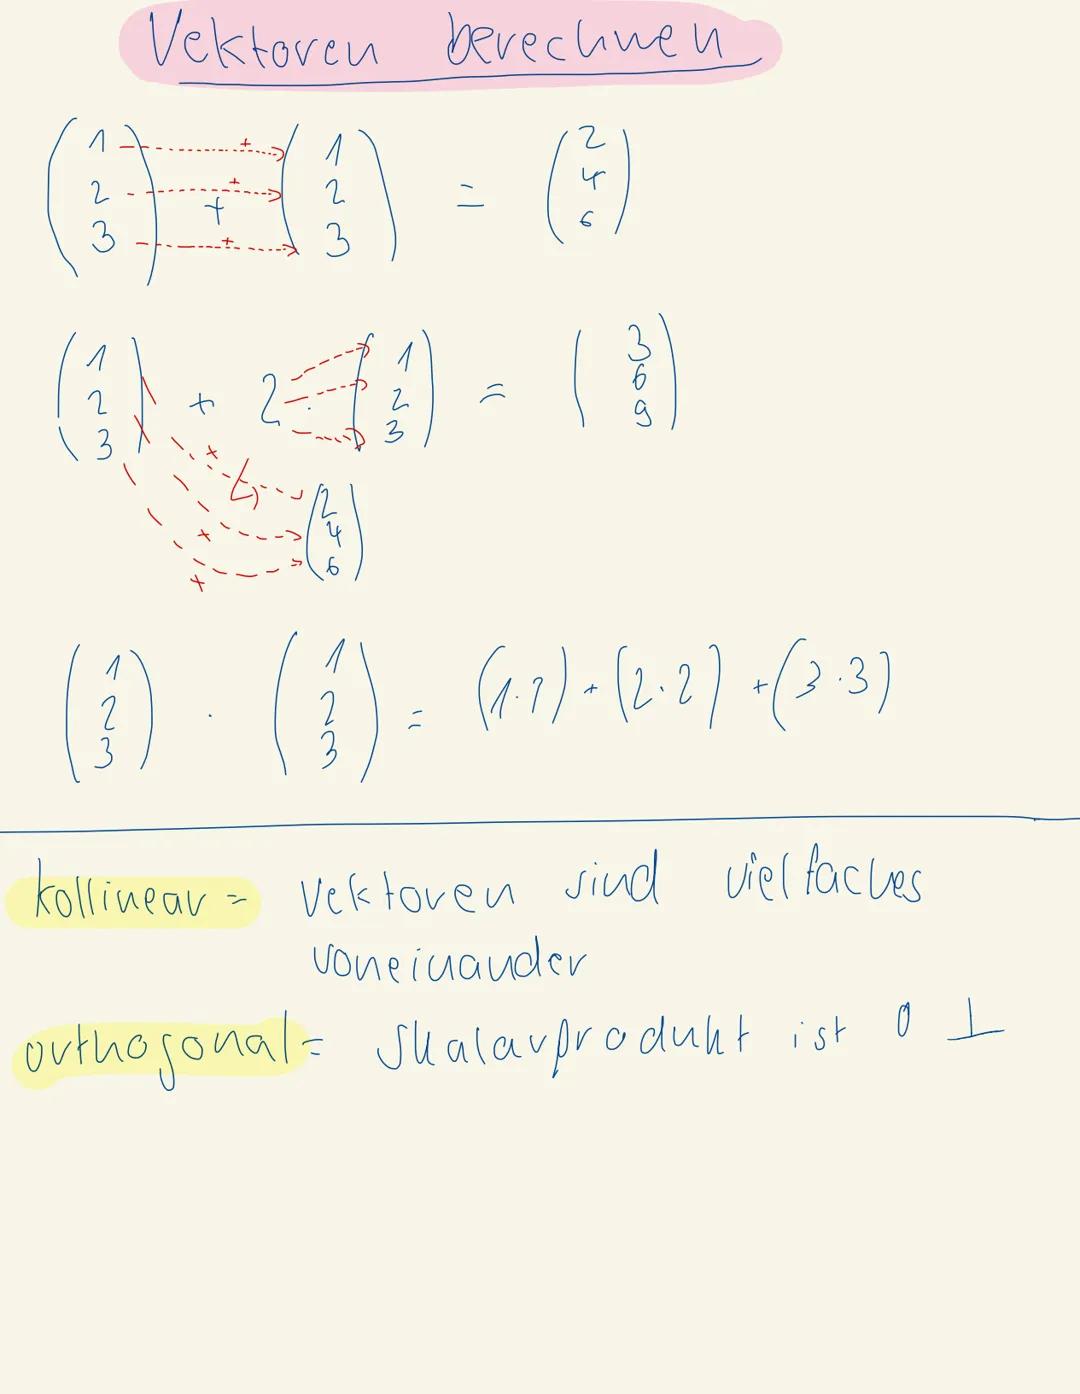 Vektoren berechnen
(1 2 3) + (1 2 3) = (2 4 6)
+ + +
(1 2 3) + 2 · (1 2 3) = (3 6 9)
+ + + (2 4 6)
(1 2 3) · (1 2 3) = (1·1) + (2·2) + (3·3)
kollinear = Vektoren sind vielfaches
voneinander
orthogonal = Skalarprodukt ist 0 ⊥